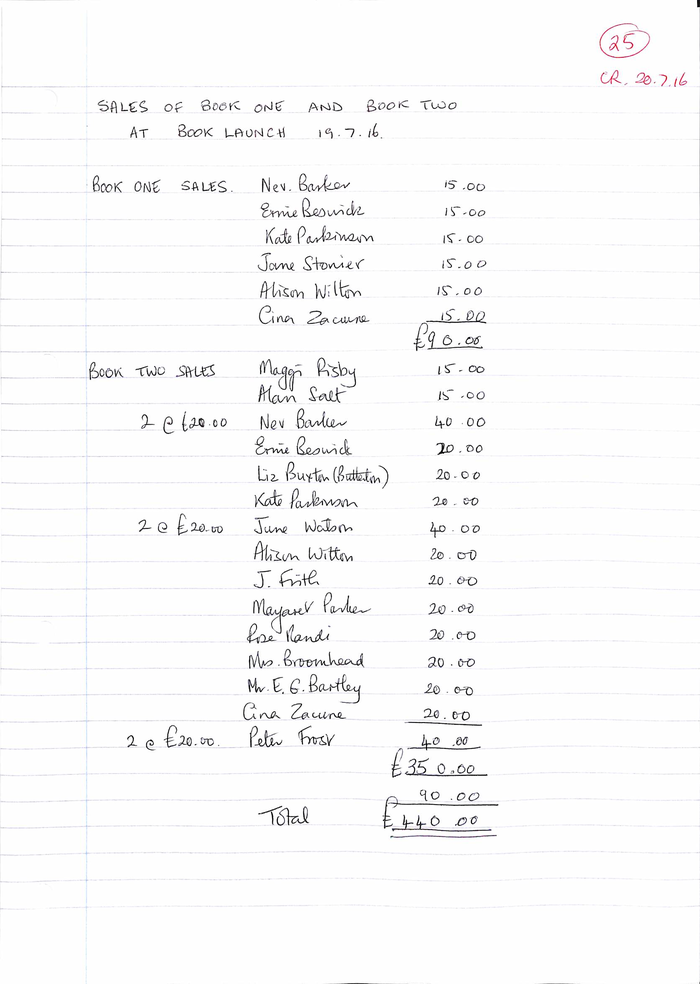 25
CR. 20.7.16
SALES OF BOOK ONE AND BOOK TWO
AT BOOK LAUNCH 19.7.16.
BOOK ONE SALES. Nev. Barker 15.00
Ernie Beswick 15.00
Kate Parkinson 15.00
Jane Stonier 15.00
Alison Wilton 15.00
Gina Zacune 15.00
£90.00
BOOK TWO SALES Maggi Risby 15.00
Alan Salt 15.00
2 @ £20.00 Nev Barker 40.00
Ernie Beswick 20.00
Liz Buxton (Butterton) 20.00
Kate Parkinson 20.00
2 @ £20.00 June Watson 40.00
Alison Witton 20.00
J. Frith 20.00
Margaret Parker 20.00
Rose 20.00
Mrs. Broomhead 20.00
Mr. E. G. Bartley 20.00
Gina Zacune 20.00
2 @ £20.00. Peter Frost 40.00
£350.00
90.00
Total £440.00